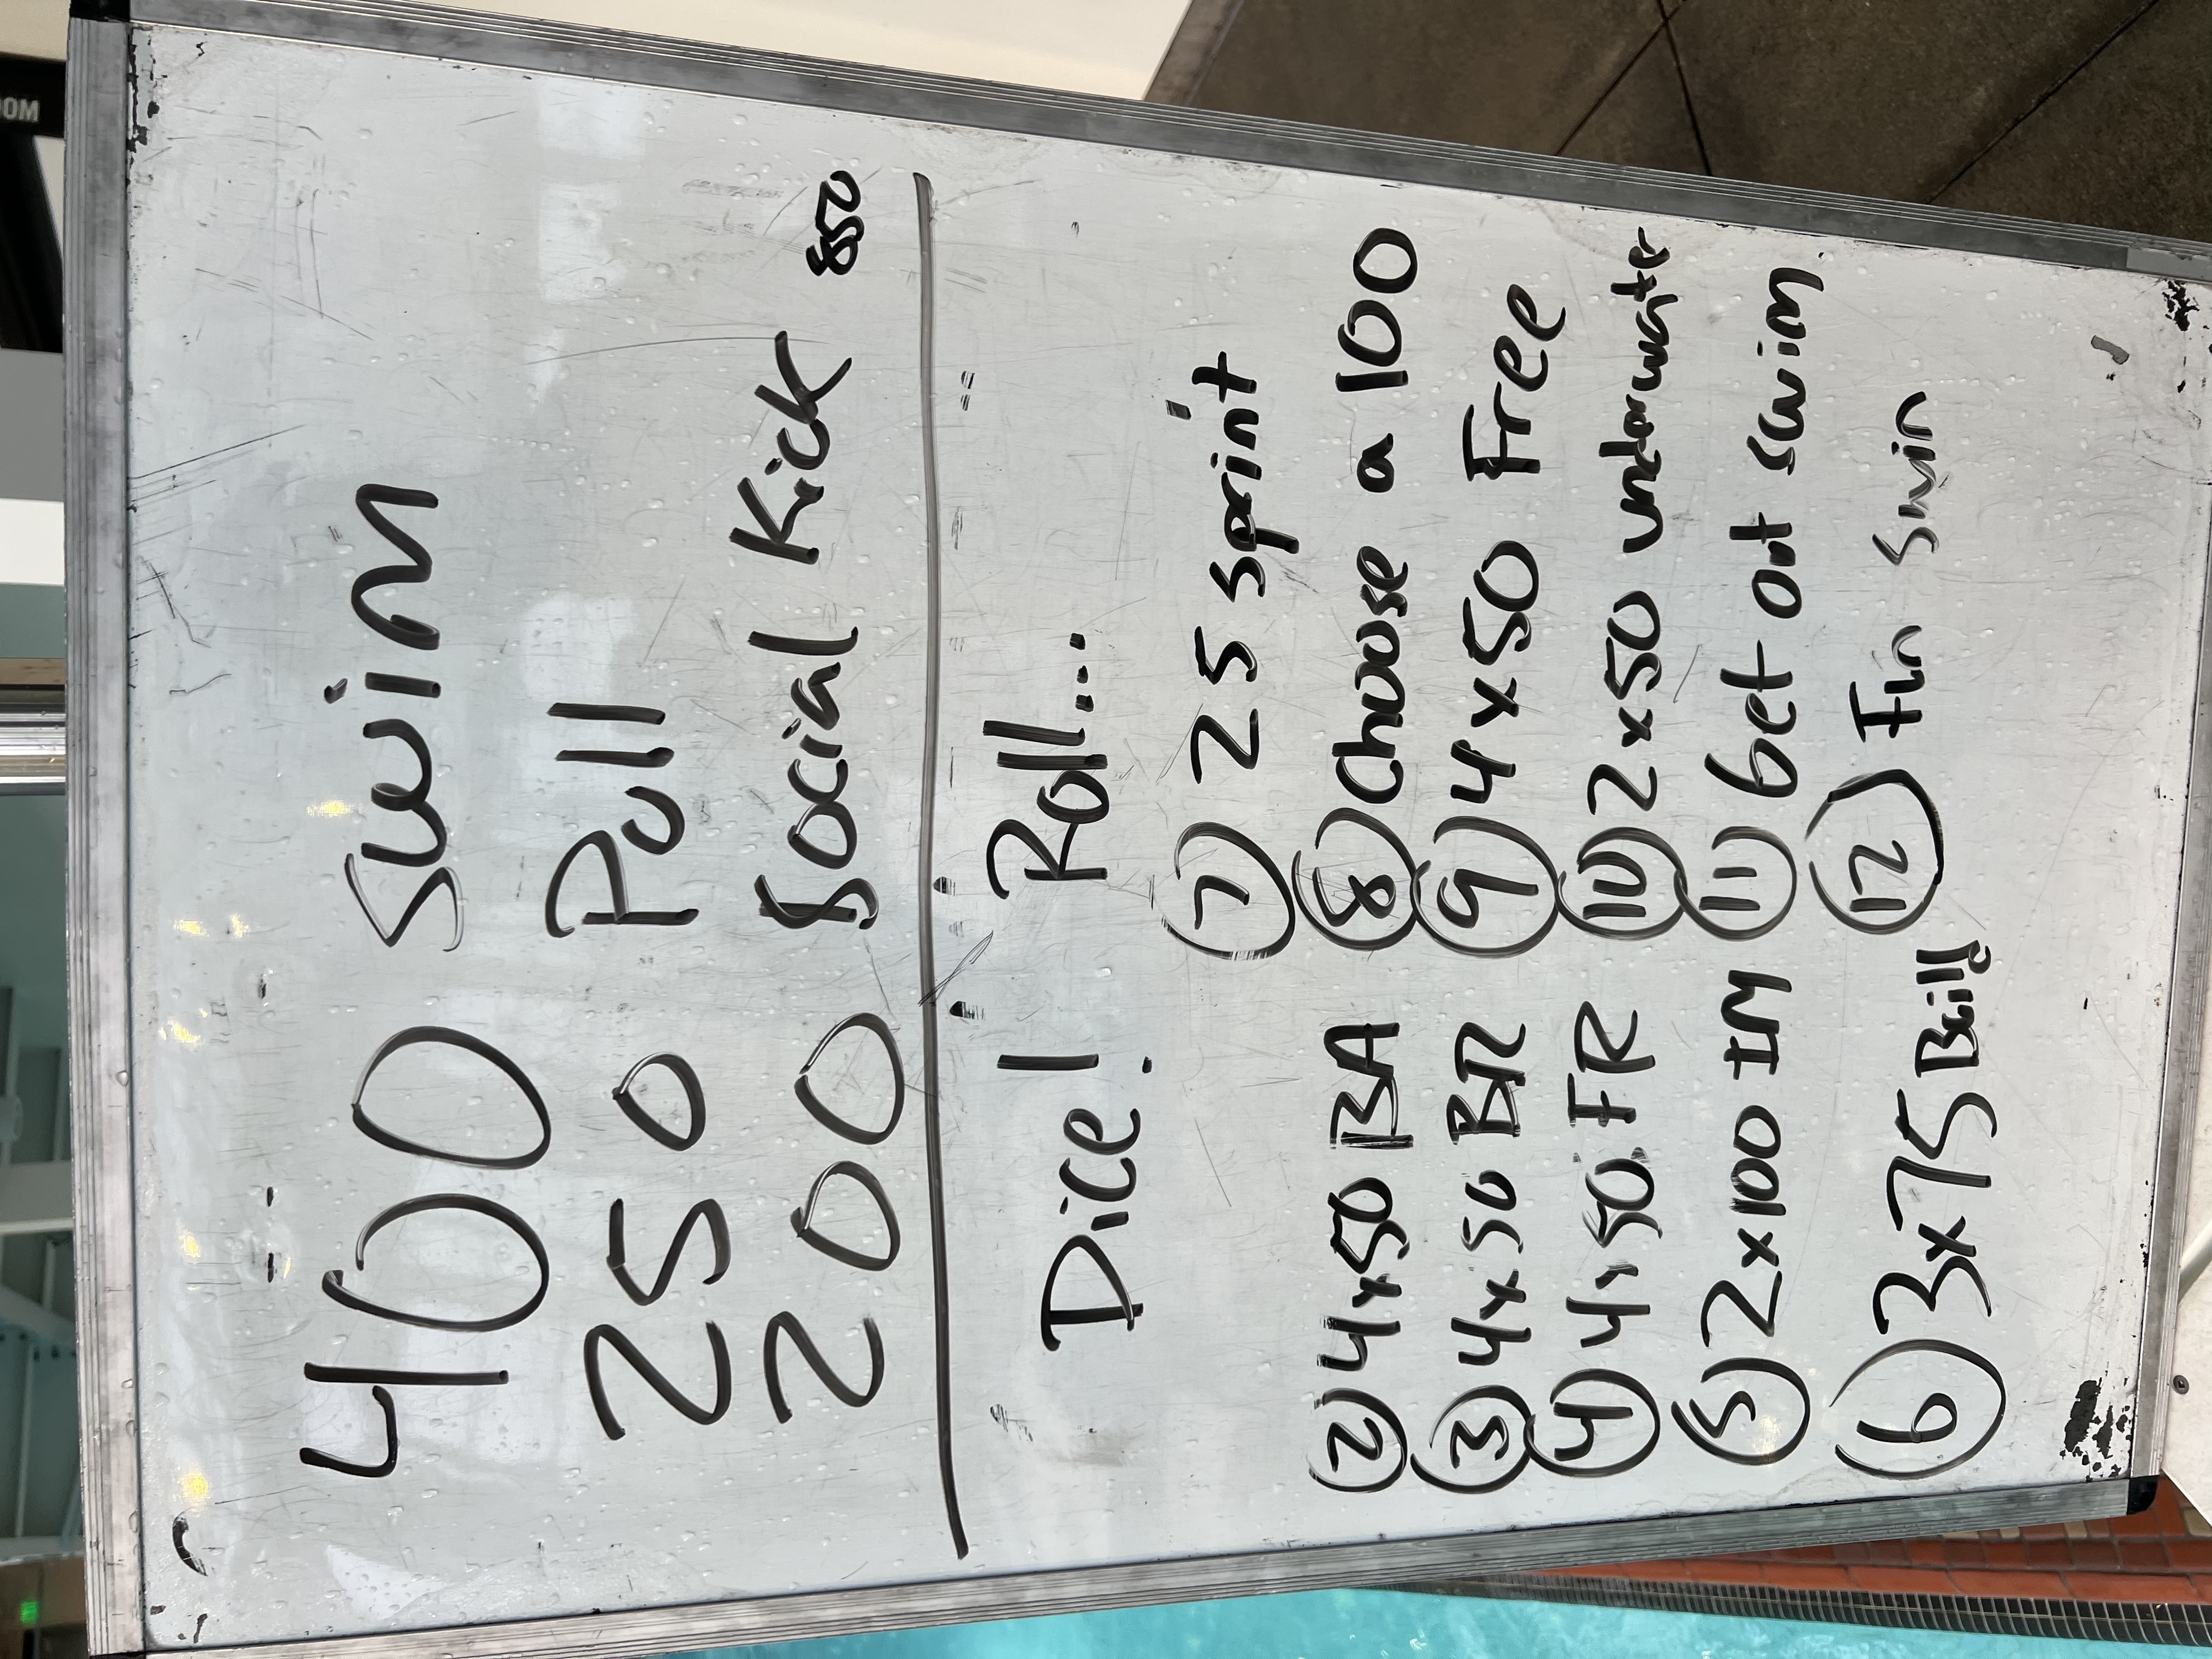 400 Swim
250 Pull
200 Social Kick 850
Dice! Roll...
⑦ 25 sprint
② 4x50 BA ⑧ Choose a 100
③ 4x50 BR ⑨ 4x50 Free
④ 4x50 FR ⑩ 2x50 underwater
⑤ 2x100 IM ⑪ Get out swim
⑥ 3x75 Build ⑫ Fun Swim
OOM